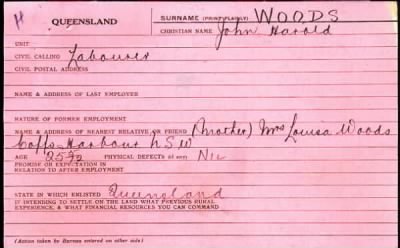 H QUEENSLAND SURNAME (PRINT PLAINLY) WOODS
CHRISTIAN NAME John Harold
UNIT
CIVIL CALLING Labourer
CIVIL POSTAL ADDRESS
NAME & ADDRESS OF LAST EMPLOYER
NATURE OF FORMER EMPLOYMENT
NAME & ADDRESS OF NEAREST RELATIVE OR FRIEND (Mother) Mrs Louisa Woods
Coffs Harbour N.S.W
AGE PHYSICAL DEFECTS (if any) Nil
PROMISE OR EXPECTATION IN
RELATION TO AFTER EMPLOYMENT
STATE IN WHICH ENLISTED Queensland
IF INTENDING TO SETTLE ON THE LAND WHAT PREVIOUS RURAL
EXPERIENCE, & WHAT FINANCIAL RESOURCES YOU CAN COMMAND
(Action taken by Bureau entered on other side)